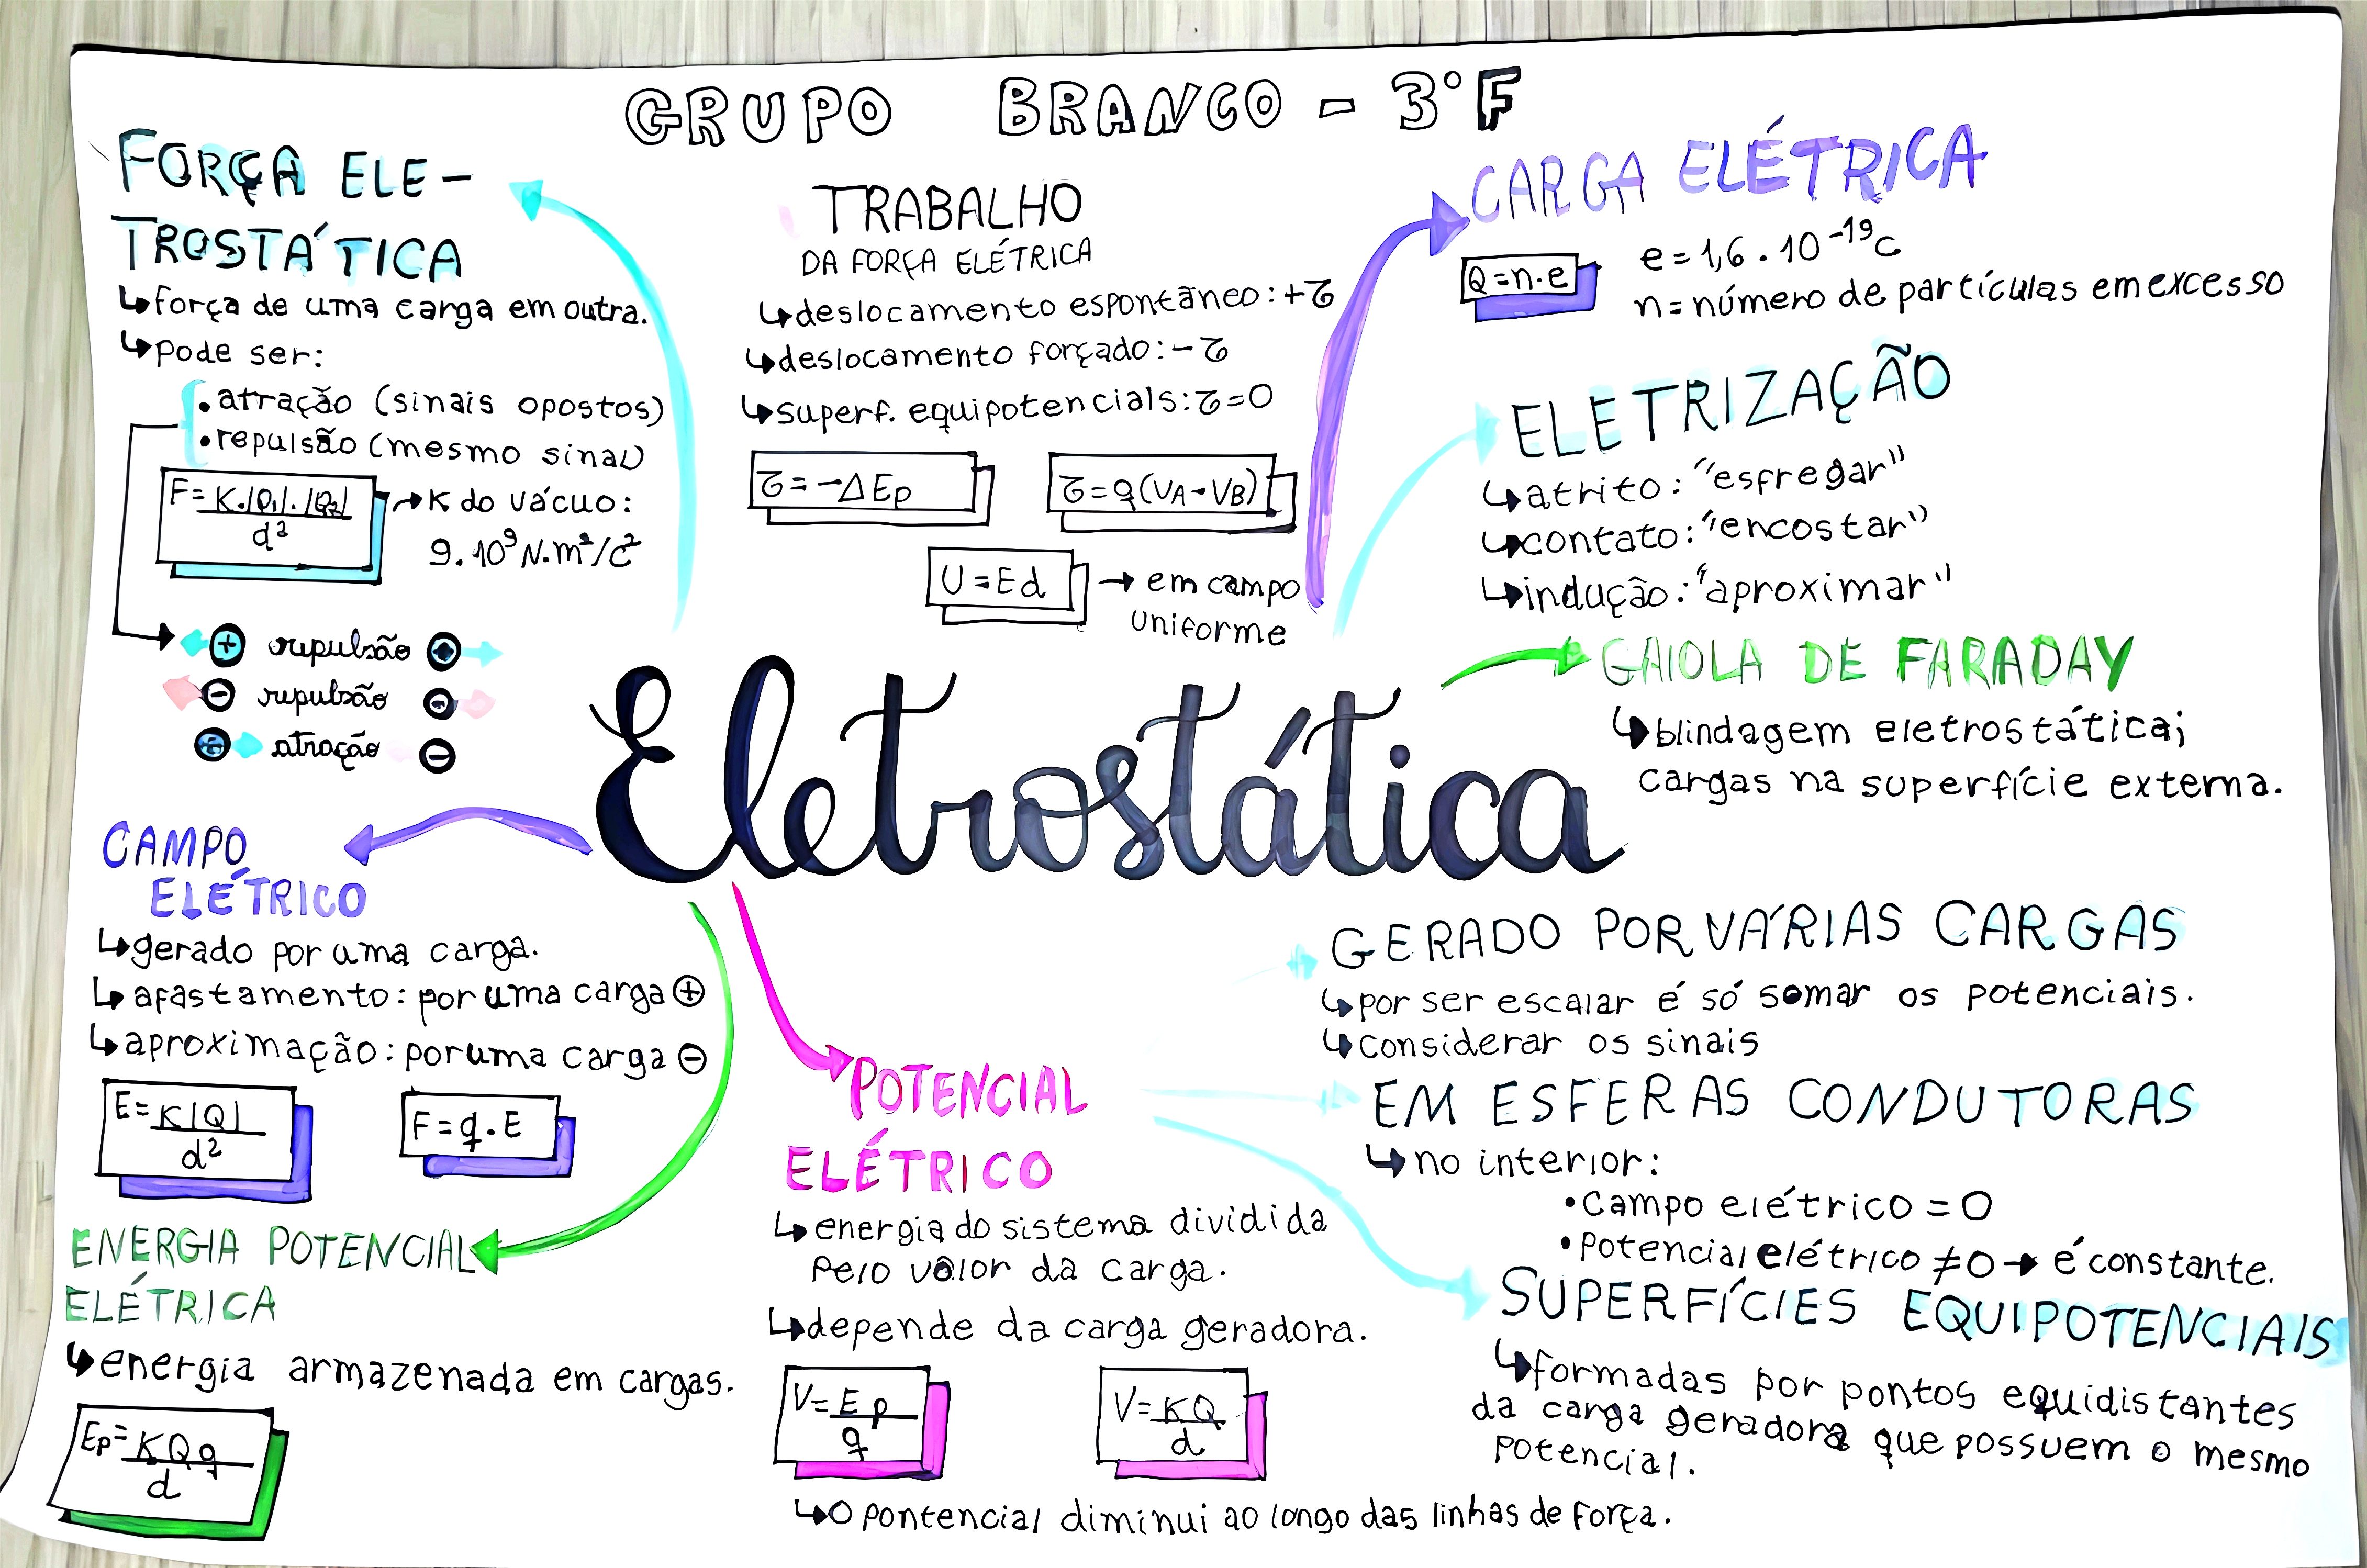 GRUPO BRANCO - 3°F
FORÇA ELE-
TROSTÁTICA
↳força de uma carga em outra.
↳pode ser:
•atração (sinais opostos)
•repulsão (mesmo sinal)
F=K.|Q₁|.|Q₂|
d²
→K do vácuo:
9.10⁹N.m²/C²
+ repulsão +
- repulsão -
+ atração -
TRABALHO
DA FORÇA ELÉTRICA
↳deslocamento espontâneo:+τ
↳deslocamento forçado:-τ
↳superf. equipotencials:τ=0
τ=-ΔEp
τ=q(VA-VB)
U=Ed → em campo
uniforme
CARGA ELÉTRICA
Q=n.e
e=1,6.10⁻¹⁹c
n=número de partículas em excesso
ELETRIZAÇÃO
↳atrito: "esfregar"
↳contato: "encostar"
↳indução: "aproximar"
GAIOLA DE FARADAY
↳blindagem eletrostática;
cargas na superfície externa.
Eletrostática
CAMPO
ELÉTRICO
↳gerado por uma carga.
↳afastamento: por uma carga ⊕
↳aproximação: por uma carga ⊖
E=K|Q|
d²
F=q.E
ENERGIA POTENCIAL
ELÉTRICA
↳energia armazenada em cargas.
Ep=KQq
d
POTENCIAL
ELÉTRICO
↳energia do sistema dividida
pelo valor da carga.
↳depende da carga geradora.
V=Ep
q
V=KQ
d
↳O pontencial diminui ao longo das linhas de força.
GERADO POR VÁRIAS CARGAS
↳por ser escalar é só somar os potenciais.
↳considerar os sinais
EM ESFERAS CONDUTORAS
↳no interior:
•Campo elétrico = 0
•Potencial elétrico ≠0→ é constante.
SUPERFÍCIES EQUIPOTENCIAIS
↳formadas por pontos equidistantes
da carga geradora que possuem o mesmo
potencial.